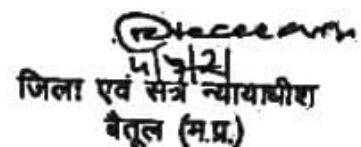 ५/३/२१
जिला एवं सत्र न्यायाधीश
बैतूल (म.प्र.)